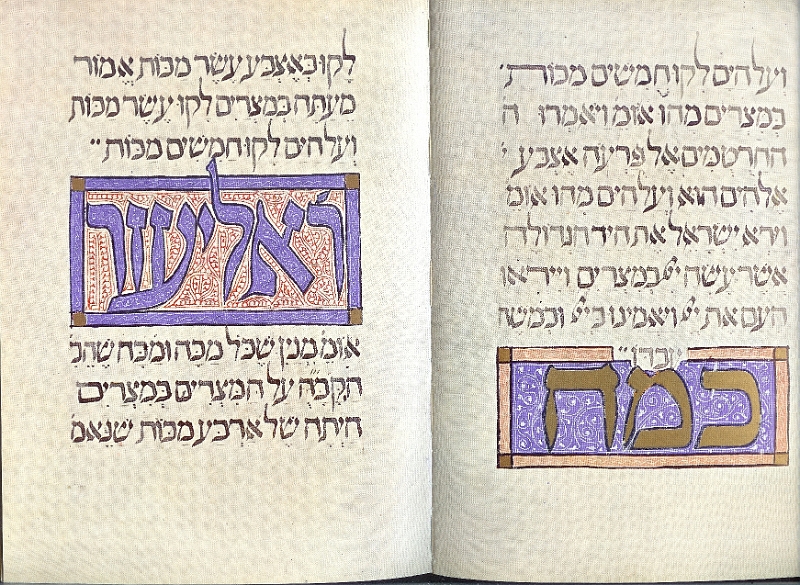 ועל הים לקו חמשים מכות
במצרים מהו אומ ויאמרו ה
החרטמים אל פרעה אצבע י
אלהים הוא ועל הים מהו אומ
וירא ישראל את היד הגדולה
אשר עשה יי במצרים וייראו
העם את יי ויאמינו ביי ובמשה
עבדו
כמה
לקו באצבע עשר מכות אמור
מעתה במצרים לקו עשר מכות
ועל הים לקו חמשים מכות
ר' אליעזר
אומ' מנין שכל מכה ומכה שהב
הקבה על המצרים במצרים
היתה של ארבע מכות שנאמ